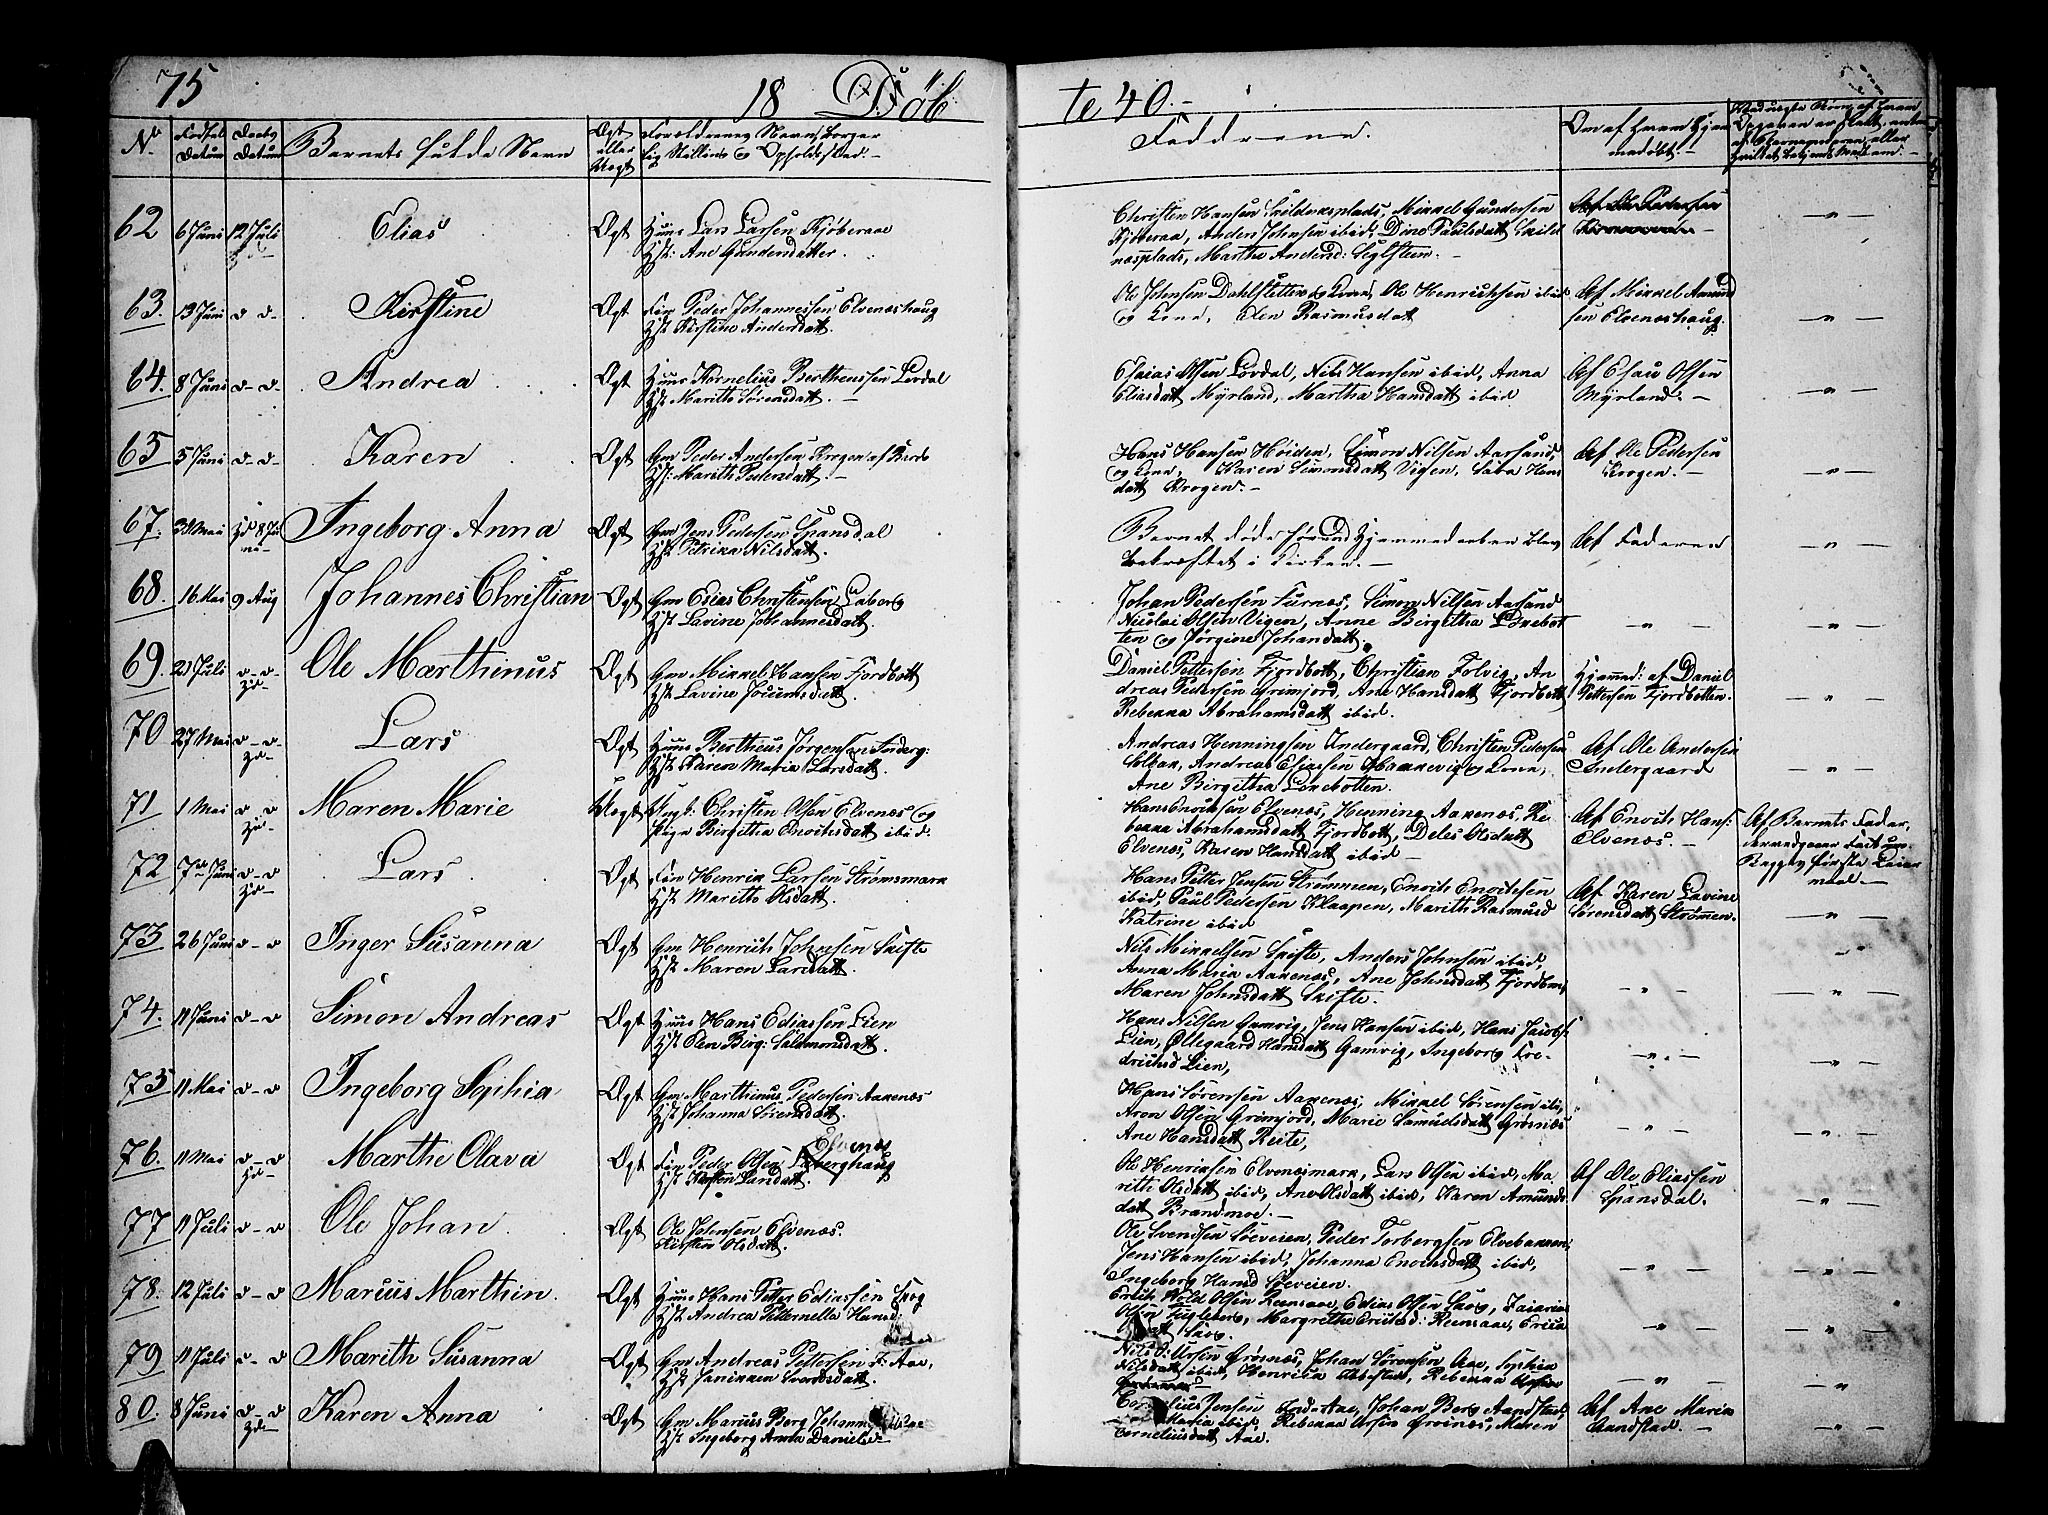 75
18 Döb
te 40.-
No
Fødsels Datum
Daabs Datum
Barnets fulde Navn
Ægt eller Uægt
Forældrenes Navn, borger
lig Stilling og Opholdssted.-
Faddrene.
Om af hvem hjem
medøbt.-
62
6 Juni
12 Juli
Elias
Ægt
Huus Lars Larsen Kjøberaae
Hst: Ane Gundersdatter
Christen Hansen Skildenæsplads, Mikkel Gundersen
Kjøberaa, Anders Johnsen ibid, Dine Paulsdatt Skild
næsplads, Marthe Andersd: Seglsteen.-
63.
13 Juni
d- d-
Kirstine
Ægt
Fin Peder Johannessen Elvenæshaug
Hst Kirstine Andersdatt.
Ole Johnsen Dahlsletten og Kone, Ole Henrichsen ibid
og Kone, Elen Rasmusdat
Af Mikkel Amund
sen Elvenæshaug.
64.
8 Juni
d- d-
Andrea
Ægt
Huus Kornelius Bertheussen Lovdal
Hst Marith Sørensdatt.-
Esaias Olsen Lovdal, Nils Hansen ibid, Anna
Eliasdatt Myrland, Martha Hansdatt ibid
Af Esau Olsen
Myrland.-
65
5 Juni
d- d-
Karen
Ægt
Gm Peder Andersen Krogen af Bardo
Hst: Marith Pedersdatt.-
Hans Hansen Høiden, Simon Nilsen Aarsund
og Kone, Karen Simonsdatt Vigen, Sara Hans
datt Krogen.-
Af Ole Pedersen
Krogen.-
67.
Ingeborg Anna
Ægt
Gm Jens Pedersen Spansdal
Hst Petrikka Nilsdatt.
Barnet døde førend Hjemmedaaben blev
bekræftet i Kirken.-
Af Faderen
68.
16 Mai
9 Aug
Johannes Christian
Ægt
Gm Esias Christensen Laberg
Hst Lavine Johannesdatt.
Johan Pedersen Furnæs, Simon Nilsen Aarsund
Nicolai Olsen Vigen, Anne Birgitha Lonebot
ten og Jørgine Johandatt.
69.
21 Juli
d- d-
Ole Marthinus
Ægt
Gm Mikkel Hansen Fjordbott
Hst Lavine Jocumsdatt.
Daniel Pettersen Fjordbott, Christian Folvig, An
dreas Pedersen Grimjord, Ane Hansdatt Fjordbott
Rebekka Abrahamsdatt ibid.
Hjemmed: af Daniel
Pettersen Fjordbotten.
70
27 Mai
d- d-
Lars
Ægt
Huus Bertheus Jørgensen Inderg:
Hst Karen Maria Larsdatt.
Andreas Henningsen Indergaard, Christen Pedersen
Solbak, Andreas Esiassen Haakevig og Kone,
Ane Birgitha Lonebotten.
Af Ole Andersen
Indergaard
71
1 Mai
d d
Maren Marie
Uægt
Ungk: Christen Olsen Elvenæs og
Pige Birgitha Enochsdatt ibid.
Hans Enochsen Elvenæs, Henning Aanenæs, Re
bekka Abrahamsdatt Fjordbott, Deles Olsdatt
Elvenæs, Karen Hansdatt ibid -
Af Enoch Hans:
Elvenæs.-
Af Barnets Fader,
72
7de Juni
d- d
Lars
Ægt
Fin Henrik Larsen Strømsmark
Hst Marith Olsdatt.
Hans Petter Jensen Strømmen, Enoch Enochsen
ibid, Paul Pedersen Klaapen, Marith Rasmusd
Katrine ibid
Af Karen Lavine
Sørensdatt Strømen.
73
26 Juni
d- d
Inger Susanna
Ægt
Gm Henrich Johnsen Skifte
Hst Maren Larsdatt.
Nils Mikkelsen Skifte, Anders Johnsen ibid,
Anna Maria Aanenæs, Ane Johnsdatt Fjordbm,
Maren Johnsdatt Skifte.
74.
11 Juni
d- d
Simon Andreas
Ægt
Huus Hans Ediassen Lien
Hst Elen Birg: Salomonsdatt.
Hans Nilsen Gamvig, Jens Hansen ibid, Hans Jacobs:
Lien, Ollegaard Hansdatt Gamvig, Ingeborg Fre-
drichsd Lien,
75
11 Mai
d- d
Ingeborg Sophia
Ægt
Gm Marthinus Pedersen Aanenæs
Hst Johanna Siversdatt.
Hans Sørensen Aanenæs, Mikkel Sørensen ibi,
Aron Olsen Grimjord, Marie Samuelsdatt Grøsnæs
Ane Hansdatt Reite,
76.
11 Mai
d- d
Marthe Olava
Ægt
Elvenæs
Fin Peder Olsen Laberghaug
Hst Kirsten Larsdatt.
Ole Henriksen Elvenæsmark, Lars Olsen ibid, Ma
rith Olsdatt ibid, Ane Olsdatt ibid, Karen Amunds
datt Brandmoe.-
Af Ole Eliassen
Spansdal.
77
11 Juli
d- d
Ole Johan.
Ægt
Ole Johnsen Elvenæs.
Kirsten Olsdatt.
Ole Svendsen Søeveien, Peder Torbergsen Elvebakken,
Jens Hansen ibid, Johanna Enochsdatt ibid,
Ingeborg Hansd Søeveien.
78.
12 Juli
d- d
Marius Marthin.
Ægt
Huus Hans Petter Ediassen Skog
Hst Andrea Petternella Hansd.
Erich Wold Olsen Reensaae, Edias Olsen Skog, Zaiarias
Olsen Fugleberg, Margrethe Erichsd: Reensaae, Ericka
datt Skog.
79
11 Juli
d- d
Marith Susanna
Ægt
Gm Andreas Pettersen Aae,
Hst Janikken Sverdsdatt.
Nils Ursin Grøsnæs, Johan Sørensen Aae, Sophia
Nilsdatt ibid, Henrikka Ibbestad, Rebekka Ursin
80.
8 Juni
d- d
Karen Anna
Ægt
Gm Marius Berg Johann
Hst Ingeborg Anna Daniels-
Cornelius Jensen Inder Aae, Johan Berg Aandstad,
Maria ibid, Rebekka Ursin Grøsnæs, Maren
Corneliusdatt Aae.
Af Ane Maria
Aandstad.-